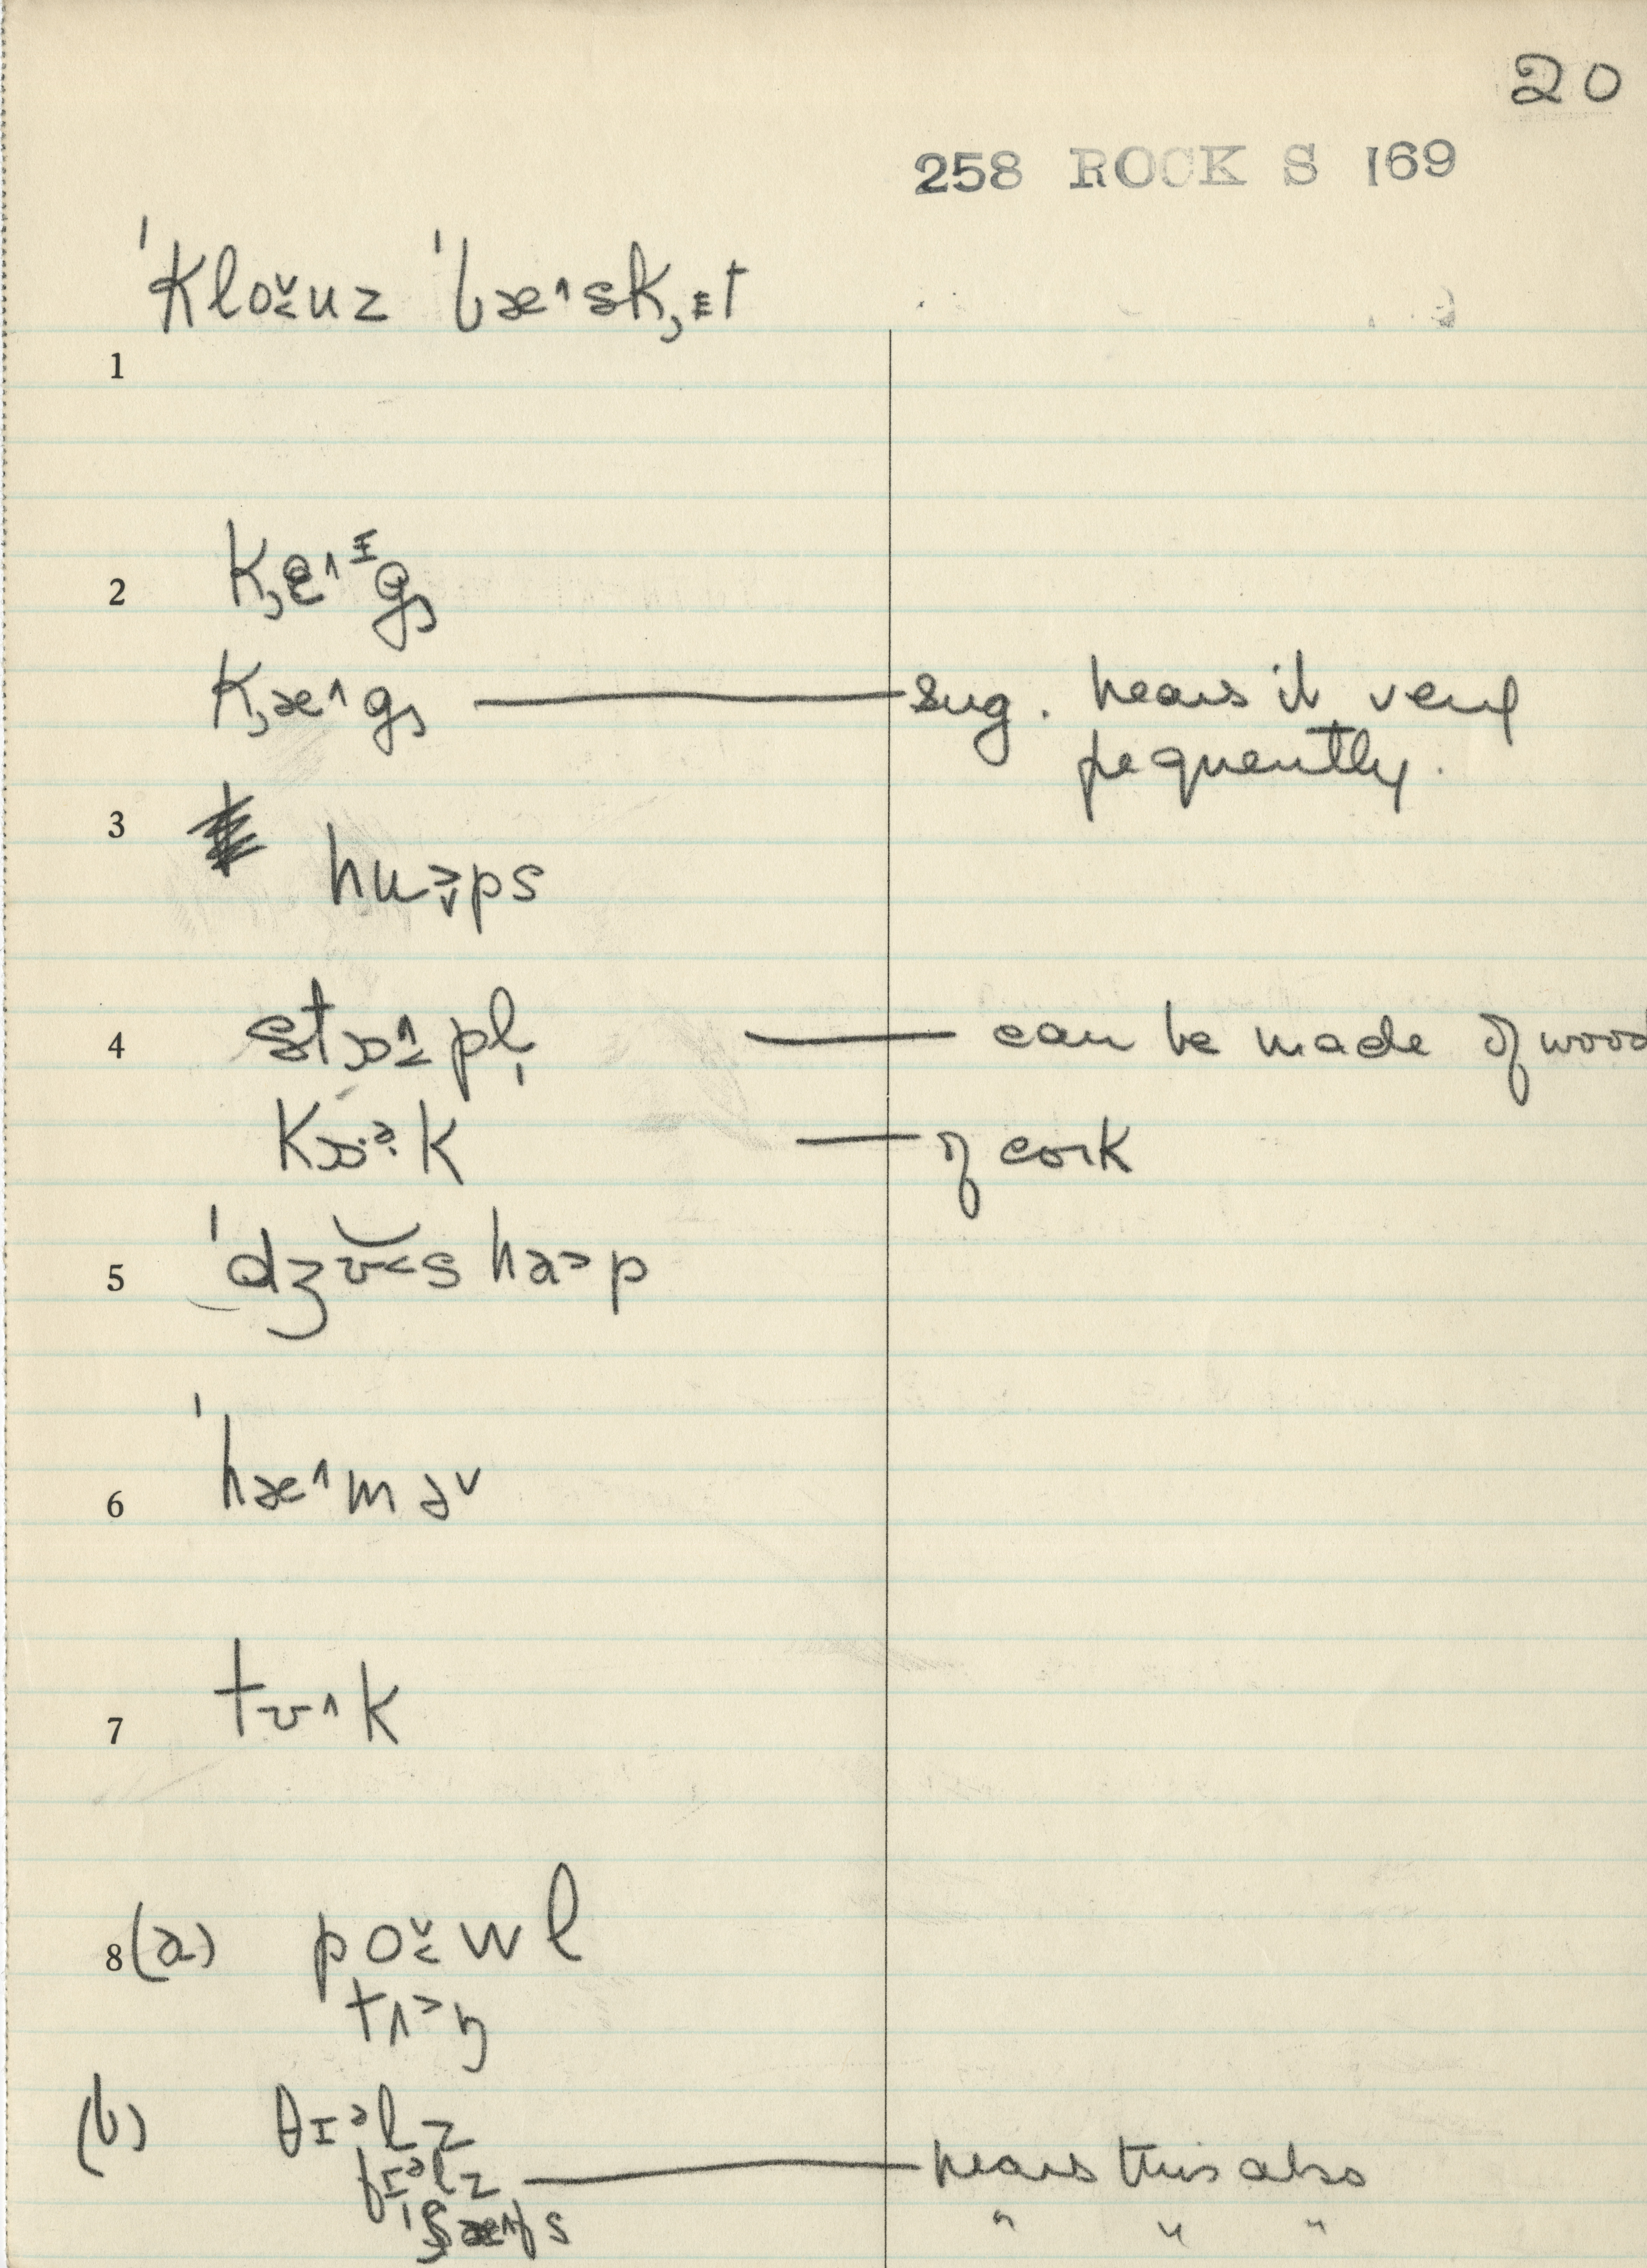 20
258 ROCK S 169
ˈkloˇ˂uz ˈbæ˄sk̡ɪt
1
2 k̡e˄ᶦg̡
k̡æ˄g̡ — sug. hears it very
frequently.
3 hu˃ˇps
4 stɔ˄˂pl̩ — can be made of wood
kɔ·ᵊ·k — of cork
5 ˈdʒʊ˂s ha˃p
6 ˈhæ˄məˇ
7 tʊ˄k
8 (a) poˇ˂wl
tʌ˃ŋ
(b) θɪᵊlz
fɪᵊlz — hears this also
" " "